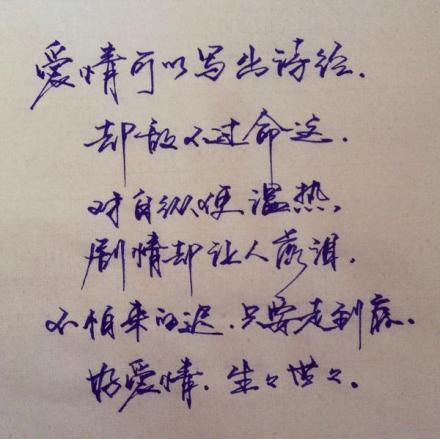 爱情可以写出诗经.
却敌不过命运.
对白纵使温热,
剧情却让人落泪.
不怕来的迟.只要走到底.
好爱情.生々世々.